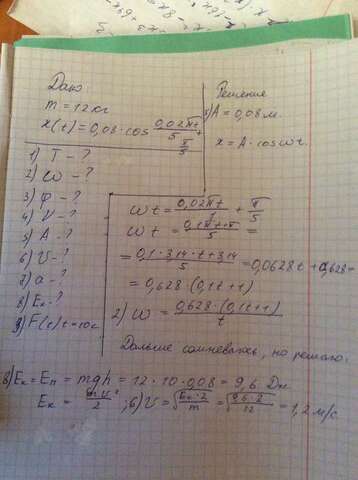 Дано:
m = 12 кг
x(t) = 0,08 · cos 0,02πt/5 + π/5
1) T - ?
2) ω - ?
3) φ - ?
4) ν - ?
5) A - ?
6) υ - ?
7) a - ?
8) Eк - ?
9) F(t) t = 10 c
Решение
5) A = 0,08 м.
x = A · cos ωt.
ωt = 0,02πt/1 + π/5
ωt = 0,1πt + π/5 =
= 0,1 · 3,14 · t + 3,14/5 = 0,0628t + 0,628 =
= 0,628 · (0,1t + 1)
2) ω = 0,628 · (0,1t + 1)/t
Дальше сомневаюсь, но решаю:
8) Eк = Eп = mgh = 12 · 10 · 0,08 = 9,6 Дж
Eк = mυ²/2 ; 6) υ = √Eк · 2/m = √9,6 · 2/12 = 1,2 м/с